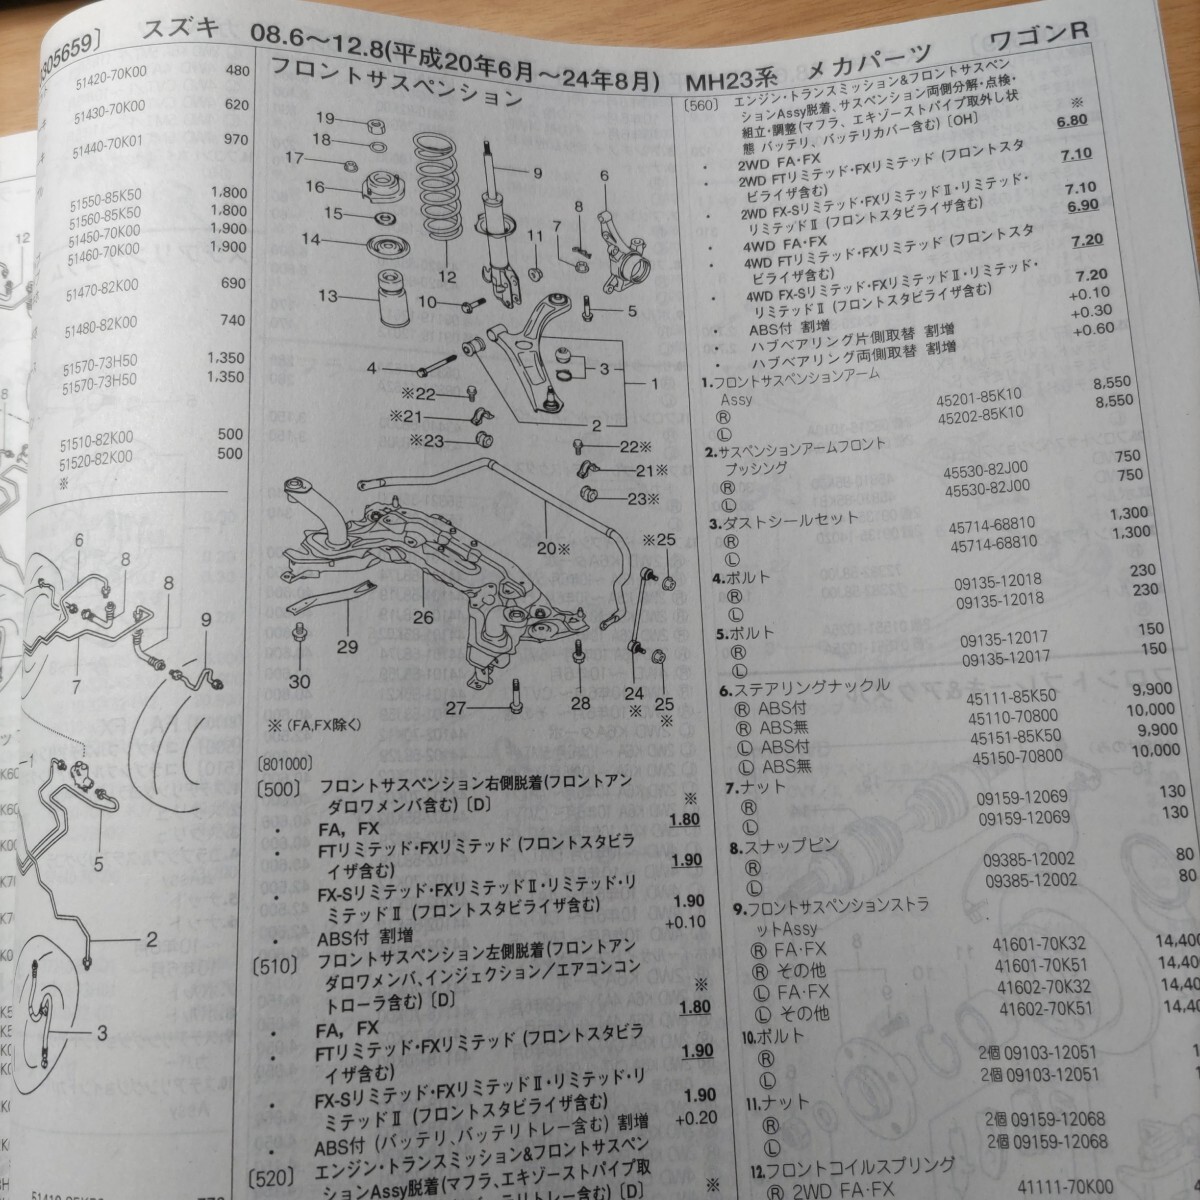 305659〕 スズキ 08.6～12.8(平成20年6月～24年8月) MH23系 メカパーツ ワゴンR
51420-70K00 480
51430-70K00 620
51440-70K01 970
51550-85K50 1,800
51560-85K50 1,800
51450-70K00 1,900
51460-70K00 1,900
51470-82K00 690
51480-82K00 740
51570-73H50 1,350
51570-73H50 1,350
51510-82K00 500
51520-82K00 500
※
12
6
8
8
9
7
5
2
3
フロントサスペンション
19
18
17
16
15
14
13
12
9
11
10
8
7
6
5
4
3
1
2
※22
※21
※23
22※
21※
23※
20※
※25
26
29
30
27
28
24
※
25
※
※(FA,FX除く)
[801000]
〔500〕 フロントサスペンション右側脱着(フロントアン
ダロワメンバ含む)〔D〕 ※
・ FA, FX 1.80
・ FTリミテッド・FXリミテッド(フロントスタビラ
イザ含む) 1.90
・ FX-Sリミテッド・FXリミテッドⅡ・リミテッド・リ
ミテッドⅡ(フロントスタビライザ含む) 1.90
・ ABS付 割増 +0.10
〔510〕 フロントサスペンション左側脱着(フロントアン
ダロワメンバ、インジェクション/エアコンコン
トローラ含む)〔D〕 ※
・ FA, FX 1.80
・ FTリミテッド・FXリミテッド(フロントスタビラ
イザ含む) 1.90
・ FX-Sリミテッド・FXリミテッドⅡ・リミテッド・リ
ミテッドⅡ(フロントスタビライザ含む) 1.90
・ ABS付(バッテリ、バッテリトレー含む) 割増 +0.20
〔520〕 エンジン・トランスミッション&フロントサスペン
ションAssy脱着(マフラ、エキゾーストパイプ取
〔560〕 エンジン・トランスミッション&フロントサスペン
ションAssy脱着、サスペンション両側分解・点検・
組立・調整(マフラ、エキゾーストパイプ取外し状
態 バッテリ、バッテリカバー含む)〔OH〕 ※
・ 2WD FA・FX 6.80
・ 2WD FTリミテッド・FXリミテッド(フロントスタ
ビライザ含む) 7.10
・ 2WD FX-Sリミテッド・FXリミテッドⅡ・リミテッド・
リミテッドⅡ(フロントスタビライザ含む) 7.10
・ 4WD FA・FX 6.90
・ 4WD FTリミテッド・FXリミテッド(フロントスタ
ビライザ含む) 7.20
・ 4WD FX-Sリミテッド・FXリミテッドⅡ・リミテッド・
リミテッドⅡ(フロントスタビライザ含む) 7.20
・ ABS付 割増 +0.10
・ ハブベアリング片側取替 割増 +0.30
・ ハブベアリング両側取替 割増 +0.60
1.フロントサスペンションアーム
Assy
Ⓡ 45201-85K10 8,550
Ⓛ 45202-85K10 8,550
2.サスペンションアームフロント
ブッシング
Ⓡ 45530-82J00 750
Ⓛ 45530-82J00 750
3.ダストシールセット
Ⓡ 45714-68810 1,300
Ⓛ 45714-68810 1,300
4.ボルト
Ⓡ 09135-12018 230
Ⓛ 09135-12018 230
5.ボルト
Ⓡ 09135-12017 150
Ⓛ 09135-12017 150
6.ステアリングナックル
Ⓡ ABS付 45111-85K50 9,900
Ⓡ ABS無 45110-70800 10,000
Ⓛ ABS付 45151-85K50 9,900
Ⓛ ABS無 45150-70800 10,000
7.ナット
Ⓡ 09159-12069 130
Ⓛ 09159-12069 130
8.スナップピン
Ⓡ 09385-12002 80
Ⓛ 09385-12002 80
9.フロントサスペンションストラ
ットAssy
Ⓡ FA・FX 41601-70K32 14,400
Ⓡ その他 41601-70K51 14,40
Ⓛ FA・FX 41602-70K32 14,40
Ⓛ その他 41602-70K51 14,4
10.ボルト
Ⓡ 2個 09103-12051
Ⓛ 2個 09103-12051
11.ナット
Ⓡ 2個 09159-12068
Ⓛ 2個 09159-12068
12.フロントコイルスプリング
Ⓡ 2WD FA・FX 41111-70K00